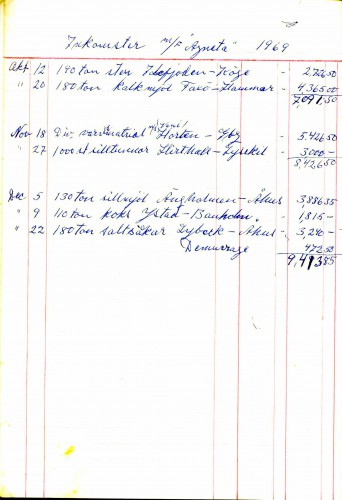 Inkomster m/s "Agneta" 1969
Okt 12 190 ton sten Idefjorden - Köge - 2,726 50
" 20 180 ton Kalkmjöl Faxö - Hammar - 4,365 00
7,091,50
Nov 18 Div. varvsmatrial Horten - Gbg - 5,426 50
" 27 1000 st silltunnor Hirthals - Lysekil - 3,000 -
8,426 50
Dec 5 130 ton sillmjöl Ängholmen - Åhus 3,886 35
" 9 110 ton koks Ystad - Banholm. - 1,815 -
" 22 180 ton saltsäckar Lybeck - Åhus - 3,240 -
Demurrage 472 50
9,413 85